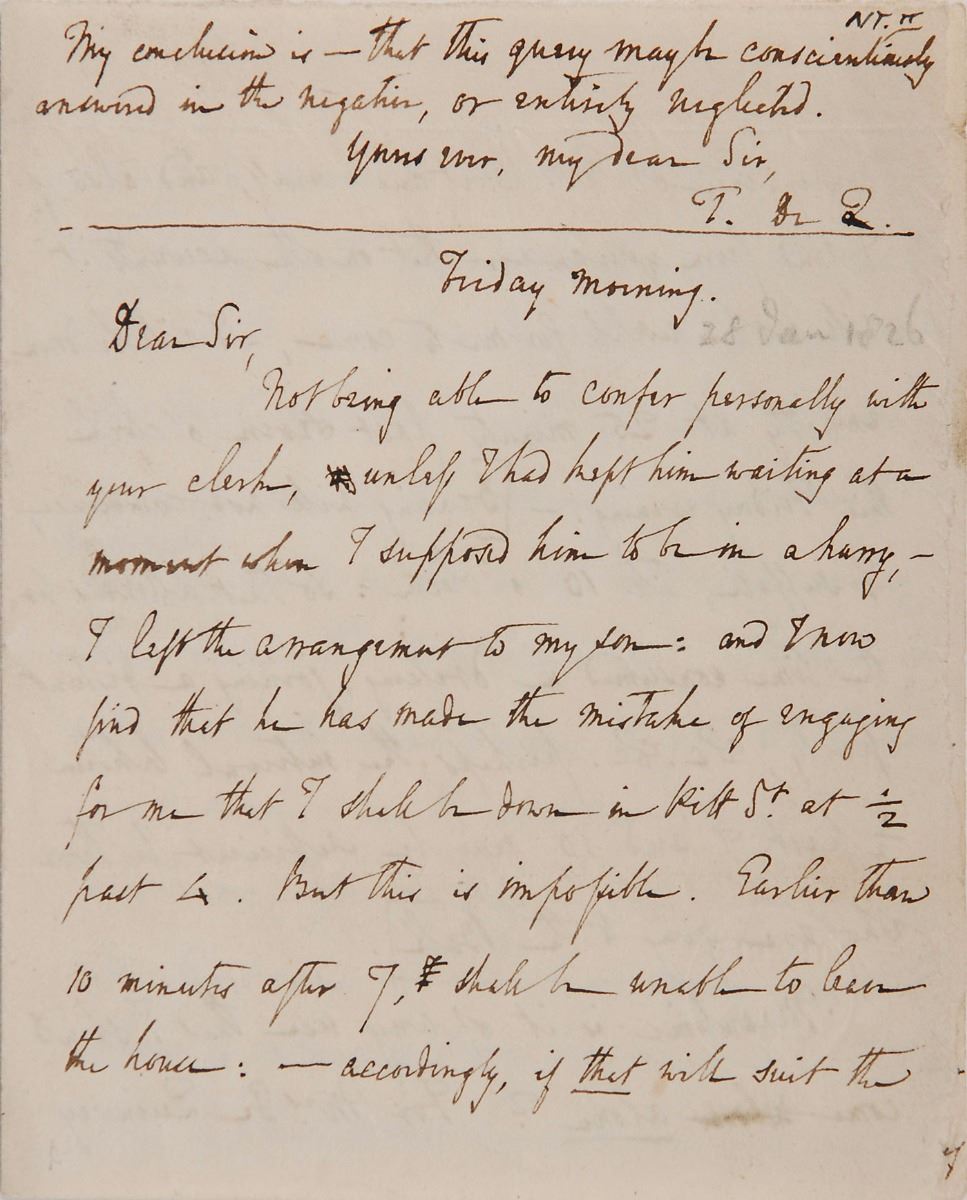 NT. II
My conclusion is — that this query may be conscientiously
answered in the negative, or entirely neglected.
Yours ever, my dear Sir,
T. De Q.
Friday morning.
Dear Sir,
28 Jan 1826
Not being able to confer personally with
your clerk, unless I had kept him waiting at a
moment when I supposed him to be in a hurry, —
I left the arrangement to my son: and I now
find that he has made the mistake of engaging
for me that I shall be down in Pitt St. at ½
past 4. But this is impossible. Earlier than
10 minutes after 7, I shall be unable to leave
the house: — accordingly, if that will suit the